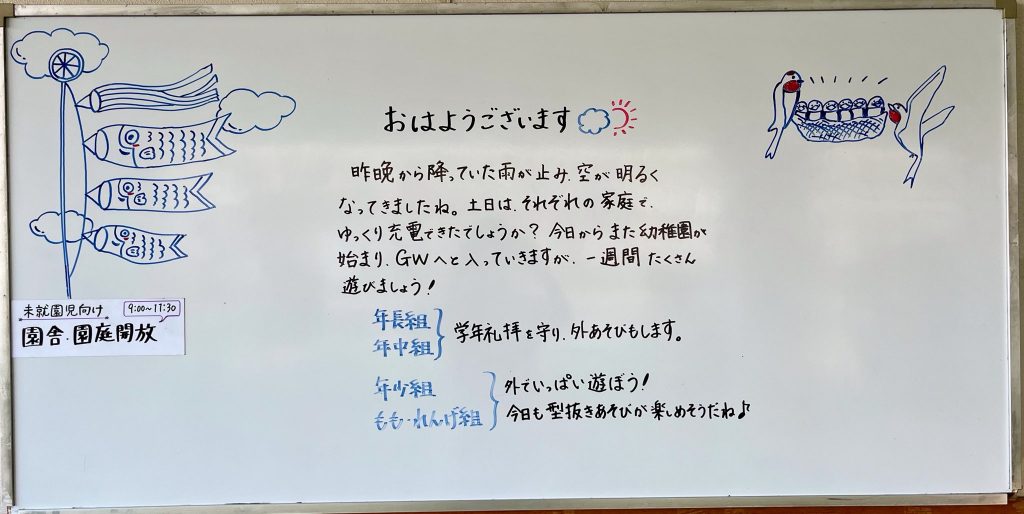 おはようございます
昨晩から降っていた雨が止み、空が明るく
なってきましたね。土日は、それぞれの家庭で、
ゆっくり充電できたでしょうか？今日からまた幼稚園が
始まり、GWへと入っていきますが、一週間たくさん
遊びましょう！
年長組
年中組
学年礼拝を守り、外あそびもします。
年少組
もも・れんげ組
外でいっぱい遊ぼう！
今日も型抜きあそびが楽しめそうだね♪
未就園児向け
9:00～11:30
園舎・園庭開放